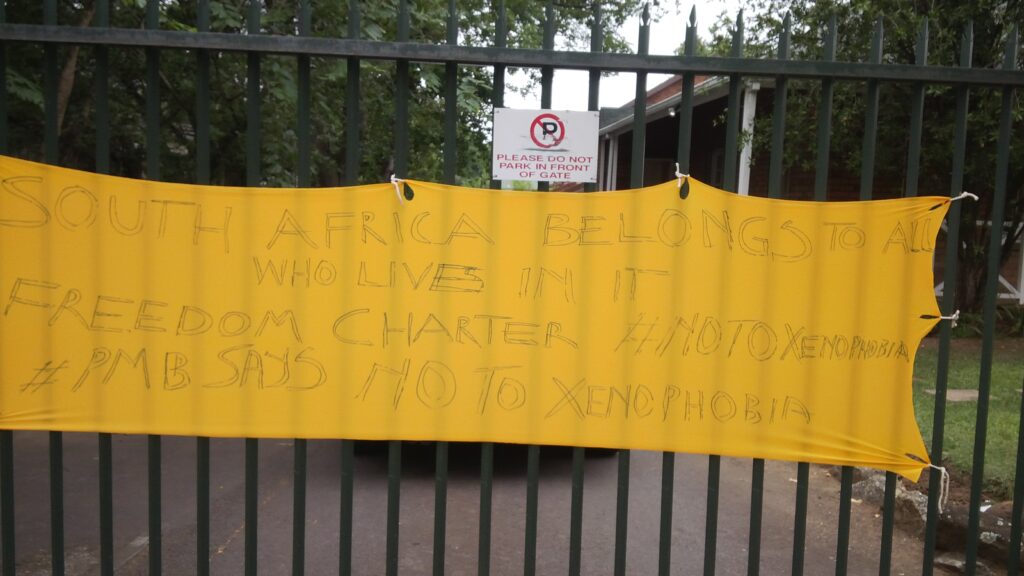 P
PLEASE DO NOT
PARK IN FRONT
OF GATE
SOUTH AFRICA BELONGS TO ALL
WHO LIVES IN IT
FREEDOM CHARTER #NOTOXENOPHOBIA
#PMB SAYS NO TO XENOPHOBIA